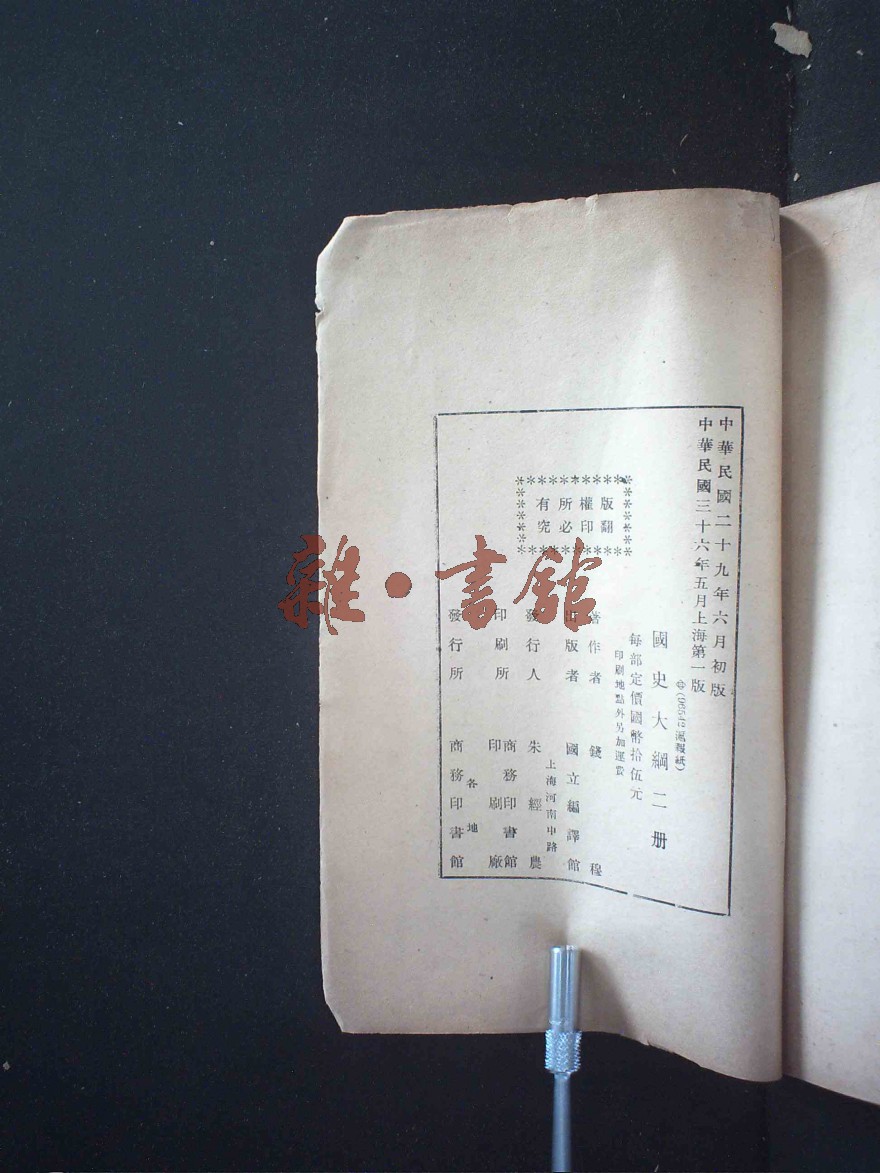 中華民國二十九年六月初版
中華民國三十六年五月上海第一版
國史大綱二册
每部定價國幣拾伍元
印刷地點外另加運費
版權所有
翻印必究
著作者 錢穆
出版者 國立編譯館
發行人 朱經農
上海河南中路
印刷所 商務印書館
印刷廠
發行所 商務印書館
各地
雜·書館